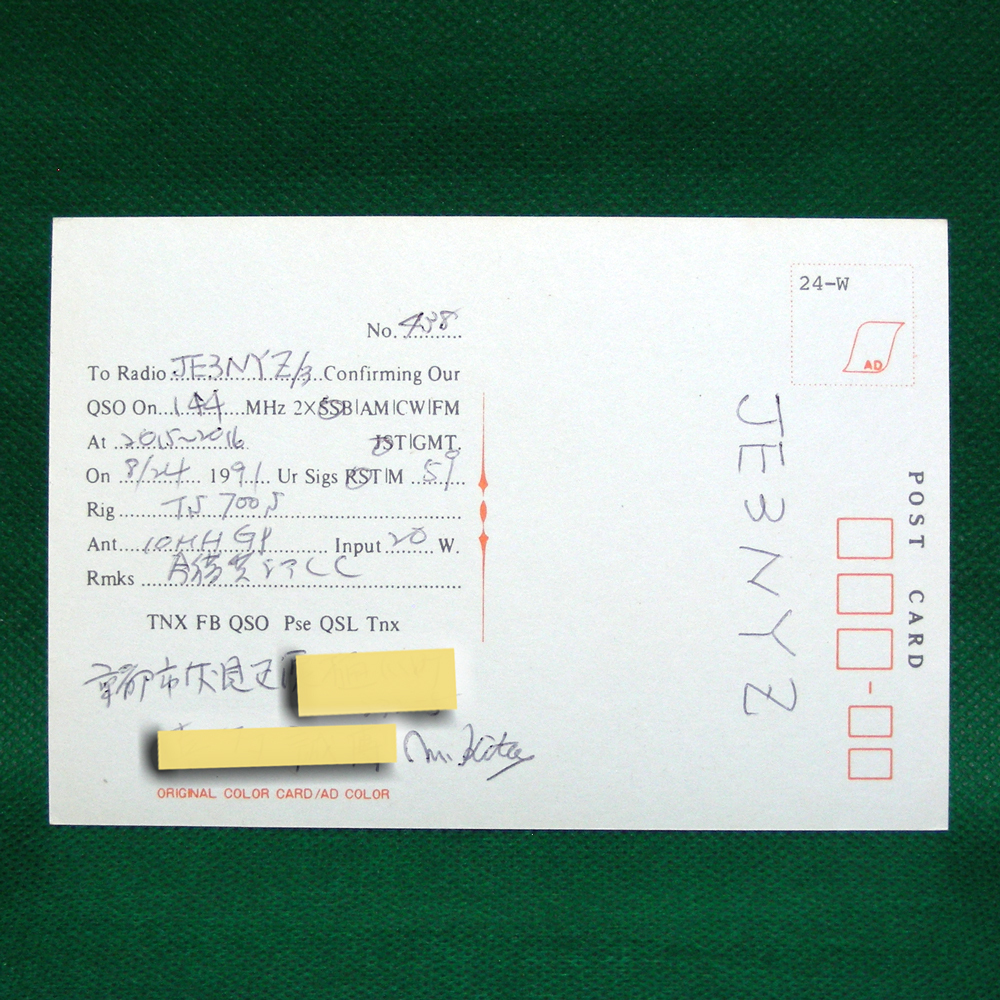 No. 438
To Radio JE3NYZ/3 Confirming Our
QSO On 144 MHz 2XSSB|AM|CW|FM
At 2015~2016 JST|GMT.
On 8/24 1991 Ur Sigs RST|M 59
Rig TS 700S
Ant 10mH GP Input 20 W.
Rmks CC
TNX FB QSO Pse QSL Tnx
京都市伏見区
ORIGINAL COLOR CARD/AD COLOR
24-W
AD
POST CARD
JE3NYZ